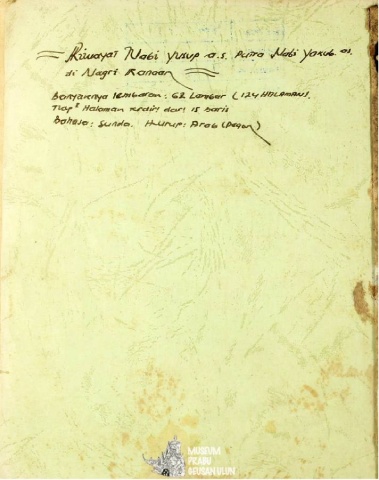 Riwayat Nabi Yusup a.s. Putra Nabi Yakub as.
di Nagri Kanaan
Banyaknya lembaran: 62 Lembar (124 HALAMAN).
Tiap² Halaman terdiri dari 15 baris
Bahasa: Sunda. Hurup: Arab (Pegon)
MUSEUM
PRABU
GEUSAN ULUN